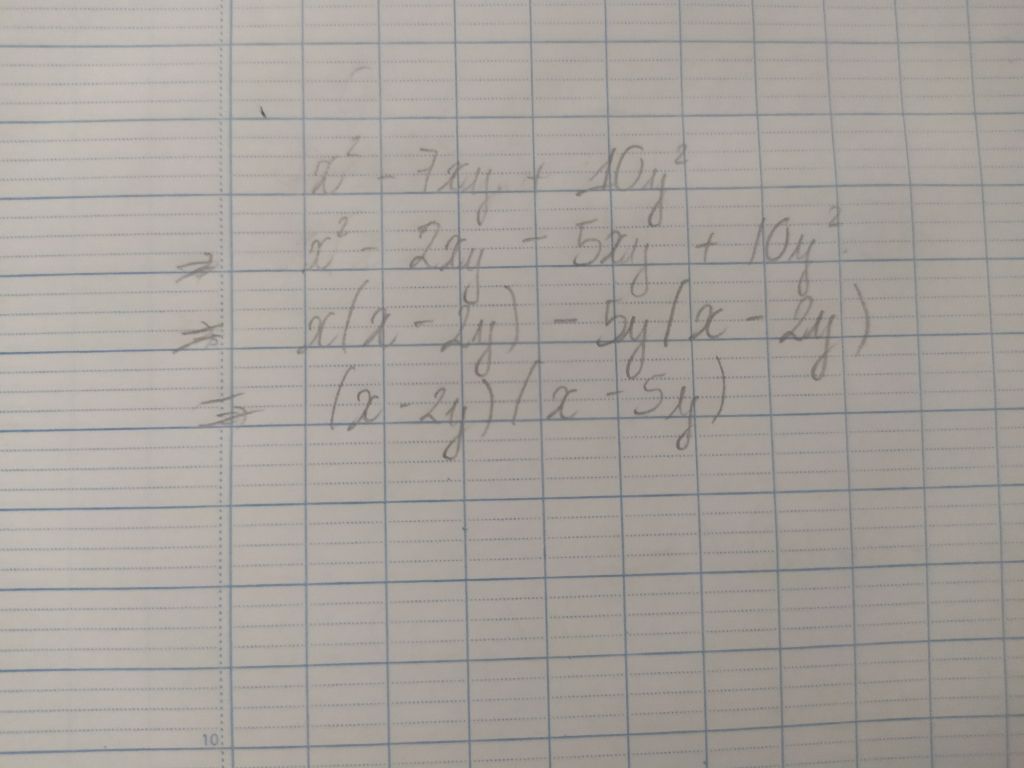 x² - 7xy + 10y²
⇒ x² - 2xy - 5xy + 10y²
⇒ x(x - 2y) - 5y(x - 2y)
⇒ (x - 2y)(x - 5y)
10